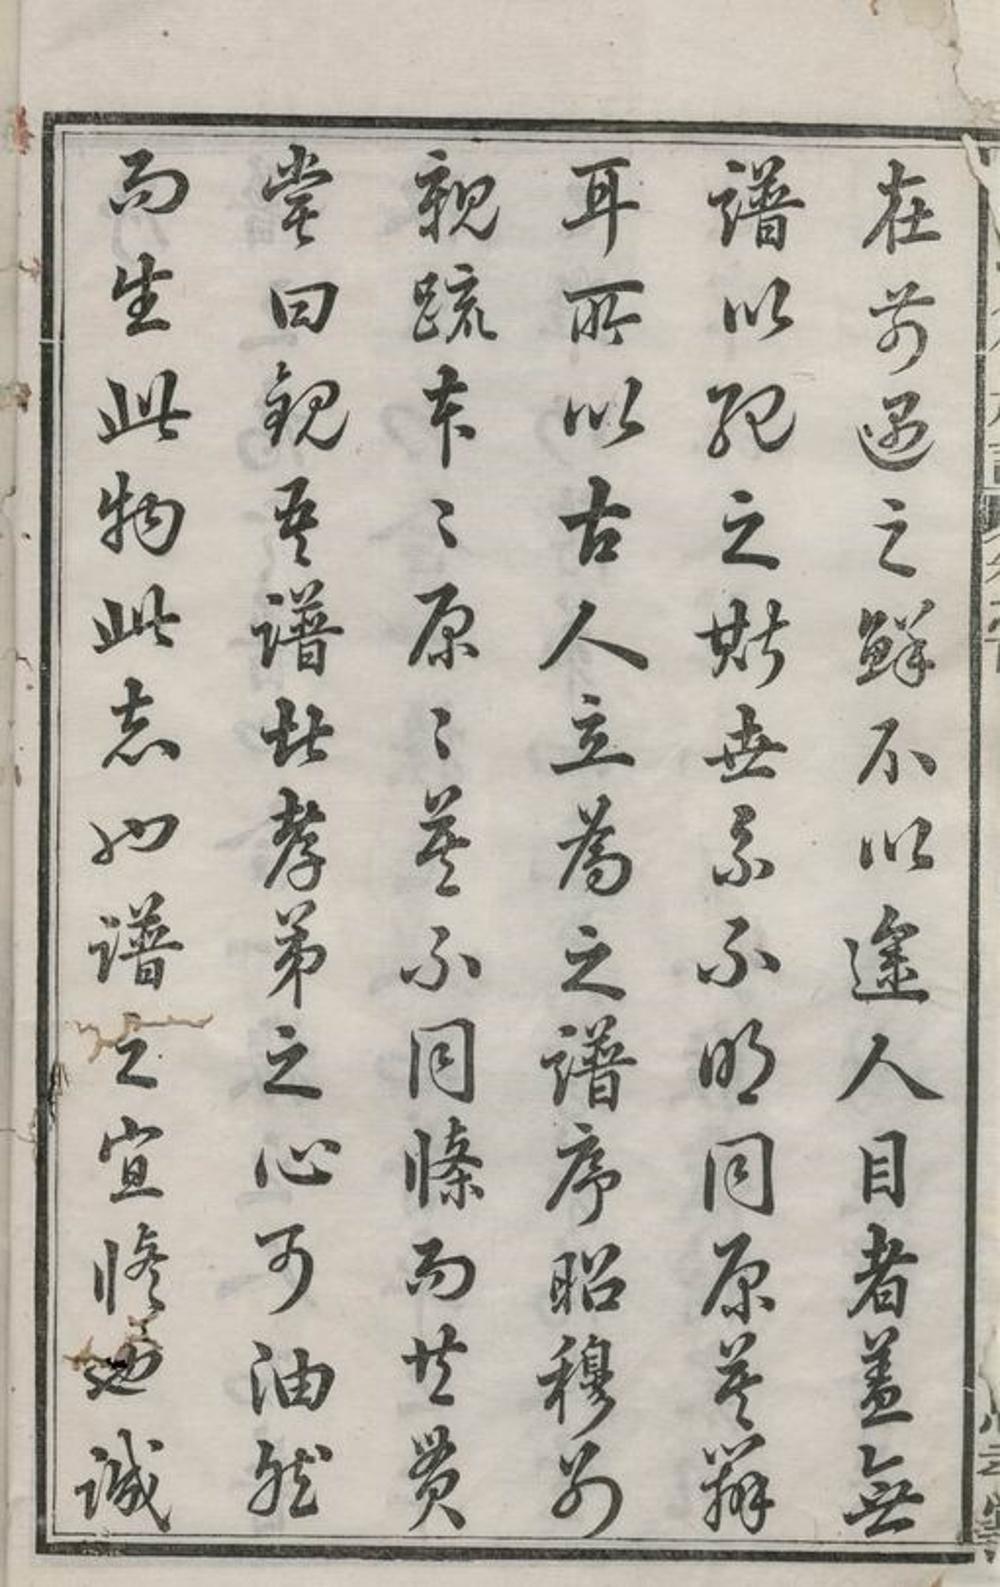 在前遇之鮮不以途人目者蓋無
譜以紀之斯世系不明同原莫辨
耳所以古人立為之譜序昭穆別
親疏本〻原〻莫不同條而共貫
嘗曰觀吾譜此孝弟之心可油然
而生此物此志也譜之宜修也誠